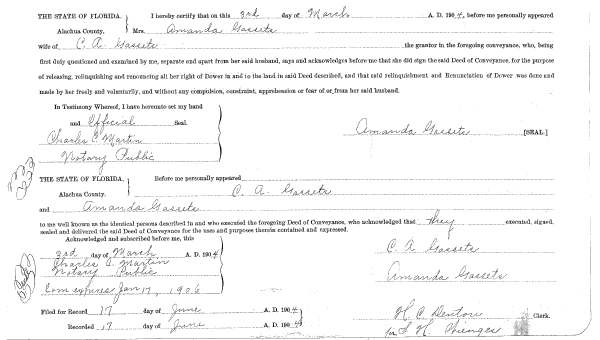 THE STATE OF FLORIDA, I hereby certify that on this 3rd day of March A. D. 1904, before me personally appeared
Alachua County. Mrs. Amanda Gassets
wife of C. A. Gassets the grantor in the foregoing conveyance, who, being
first duly questioned and examined by me, separate and apart from her said husband, says and acknowledges before me that she did sign the said Deed of Conveyance, for the purpose
of releasing, relinquishing and renouncing all her right of Dower in and to the land in said Deed described, and that said relinquishment and Renunciation of Dower was done and
made by her freely and voluntarily, and without any compulsion, constraint, apprehension or fear of or from her said husband.
In Testimony Whereof, I have hereunto set my hand
and Official Seal.
Charles C. Martin
Notary Public
Amanda Gassets [SEAL.]
THE STATE OF FLORIDA, Before me personally appeared
Alachua County. C. A. Gassets
and Amanda Gassets
to me well known as the identical persons described in and who executed the foregoing Deed of Conveyance, who acknowledged that they executed, signed,
sealed and delivered the said Deed of Conveyance for the uses and purposes therein contained and expressed.
Acknowledged and subscribed before me, this
3rd day of March A. D. 1904
Charles C. Martin
Notary Public
Com expires Jan 17, 1906
C A Gassets
Amanda Gassets
Filed for Record 17 day of June A. D. 1904
Recorded 17 day of June A. D. 1904
H. C. Denton Clerk.
S. H. Wienges